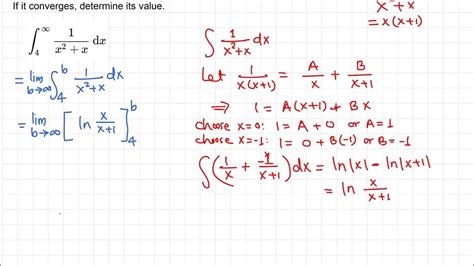 If it converges, determine its value.
x² + x
= x(x+1)
∫₄^∞ 1/(x² + x) dx
= lim b→∞ ∫₄^b 1/(x²+x) dx
= lim b→∞ [ ln x/(x+1) ]₄^b
∫ 1/(x²+x) dx
Let 1/(x(x+1)) = A/x + B/(x+1)
⇒ 1 = A(x+1) + Bx
choose x=0: 1 = A + 0 or A = 1
choose x=-1: 1 = 0 + B(-1) or B = -1
∫(1/x + -1/(x+1)) dx = ln|x| - ln|x+1|
= ln x/(x+1)